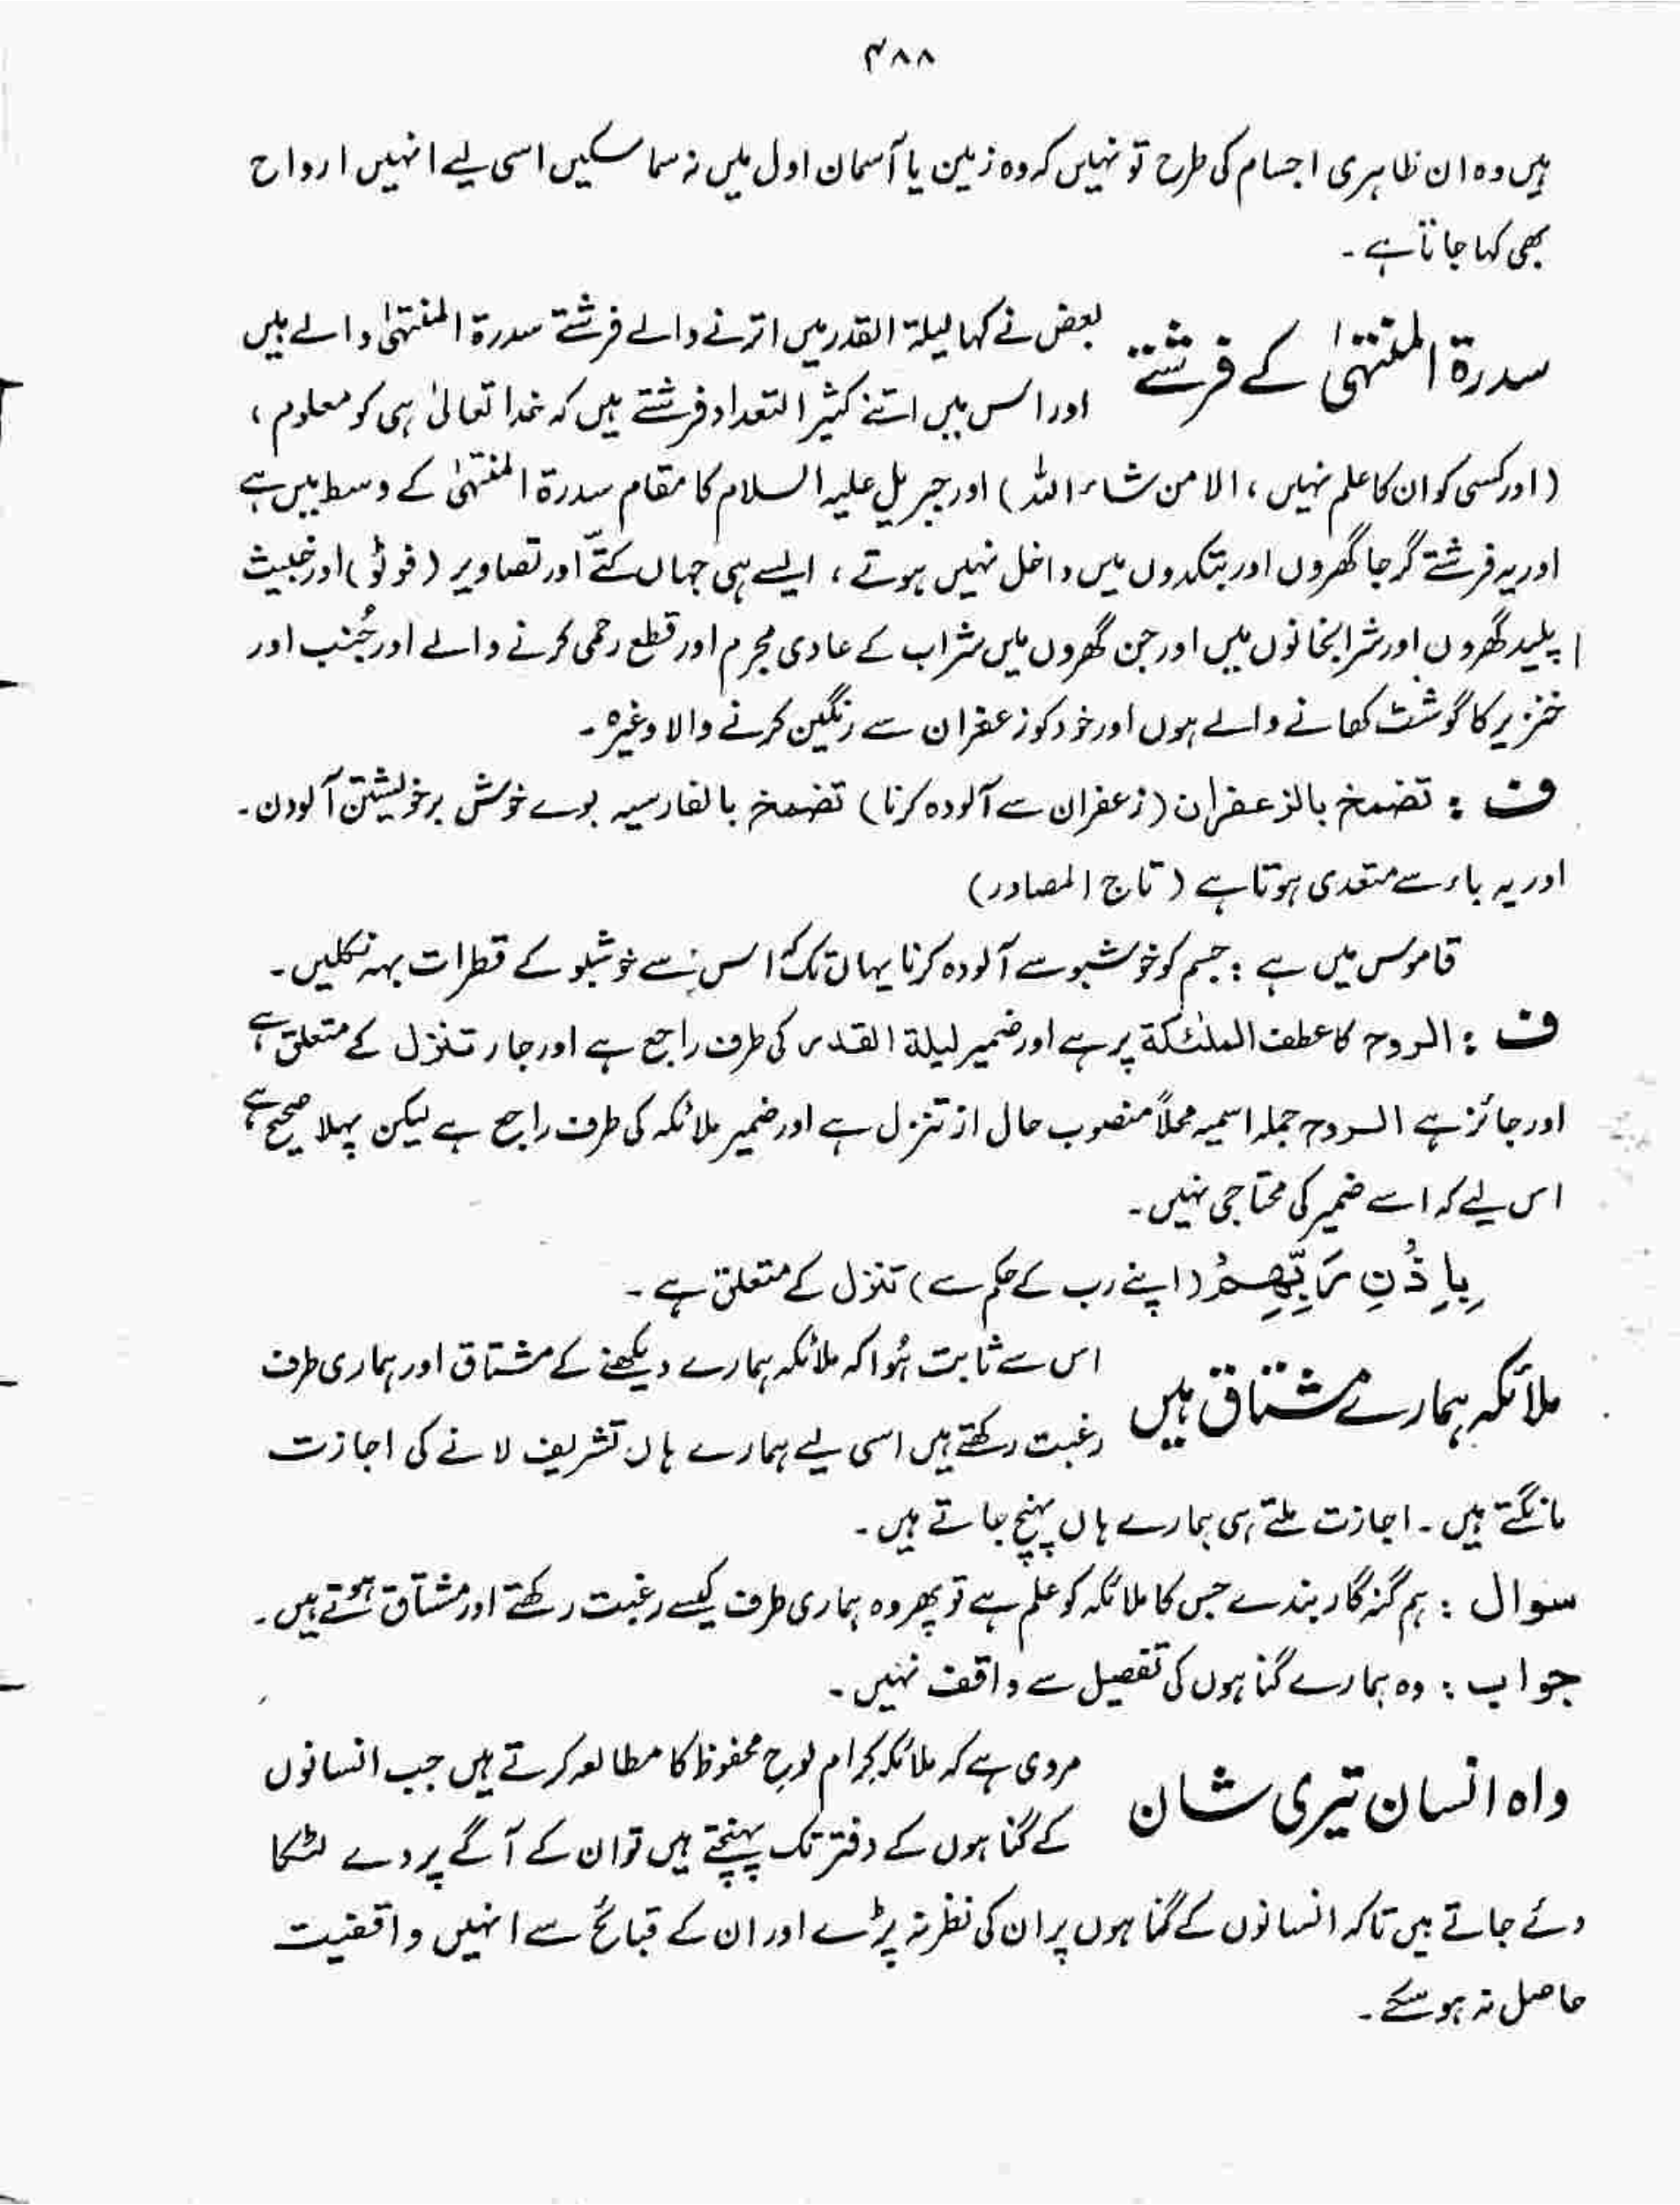 ۴۸۸
ہیں وہ ان ظاہری اجسام کی طرح تو نہیں کہ وہ زمین یا آسمان اول میں نہ سما سکیں اسی لیے انہیں ارواح
بھی کہا جاتا ہے۔
سدرۃ المنتہیٰ کے فرشتے
بعض نے کہا لیلۃ القدر میں اترنے والے فرشتے سدرۃ المنتہیٰ والے ہیں
اور اس میں اتنے کثیر التعداد فرشتے ہیں کہ خدا تعالیٰ ہی کو معلوم ،
(اور کسی کو ان کا علم نہیں ، الا من شاء اللہ) اور جبریل علیہ السلام کا مقام سدرۃ المنتہیٰ کے وسط میں ہے
اور یہ فرشتے گرجا گھروں اور بتکدوں میں داخل نہیں ہوتے ، ایسے ہی جہاں کتّے اور تصاویر (فوٹو) اور خبیث
پلید گھروں اور شرابخانوں میں اور جن گھروں میں شراب کے عادی مجرم اور قطع رحمی کرنے والے اور جُنب اور
خنزیر کا گوشت کھانے والے ہوں اور خود کو زعفران سے رنگین کرنے والا وغیرہ۔
ف : تضمخ بالزعفران (زعفران سے آلودہ کرنا) تضمخ بالفارسیہ بوے خوش برخویشتن آلودن۔
اور یہ باء سے متعدی ہوتا ہے (تاج المصادر)
قاموس میں ہے : جسم کو خوشبو سے آلودہ کرنا یہاں تک کہ اس سے خوشبو کے قطرات بہہ نکلیں۔
ف : الروح کا عطف الملٰئکة پر ہے اور ضمیر لیلة القدر کی طرف راجع ہے اور جار تنزل کے متعلق ہے
اور جائز ہے الروح جملہ اسمیہ محلاً منصوب حال از تنزل ہے اور ضمیر ملائکہ کی طرف راجع ہے لیکن پہلا صحیح ہے
اس لیے کہ اسے ضمیر کی محتاجی نہیں۔
بِاِذْنِ رَبِّهِمْ (اپنے رب کے حکم سے) تنزل کے متعلق ہے۔
ملائکہ ہمارے مشتاق ہیں
اس سے ثابت ہُوا کہ ملائکہ ہمارے دیکھنے کے مشتاق اور ہماری طرف
رغبت رکھتے ہیں اسی لیے ہمارے ہاں تشریف لانے کی اجازت
مانگتے ہیں۔ اجازت ملتے ہی ہمارے ہاں پہنچ جاتے ہیں۔
سوال : ہم گنہگار بندے جس کا ملائکہ کو علم ہے تو پھر وہ ہماری طرف کیسے رغبت رکھتے اور مشتاق ہوتے ہیں۔
جواب : وہ ہمارے گناہوں کی تفصیل سے واقف نہیں۔
واہ انسان تیری شان
مروی ہے کہ ملائکہ کرام لوح محفوظ کا مطالعہ کرتے ہیں جب انسانوں
کے گناہوں کے دفتر تک پہنچتے ہیں تو ان کے آگے پردے لٹکا
دئے جاتے ہیں تاکہ انسانوں کے گناہوں پر ان کی نظر نہ پڑے اور ان کے قبائح سے انہیں واقفیت
حاصل نہ ہو سکے۔